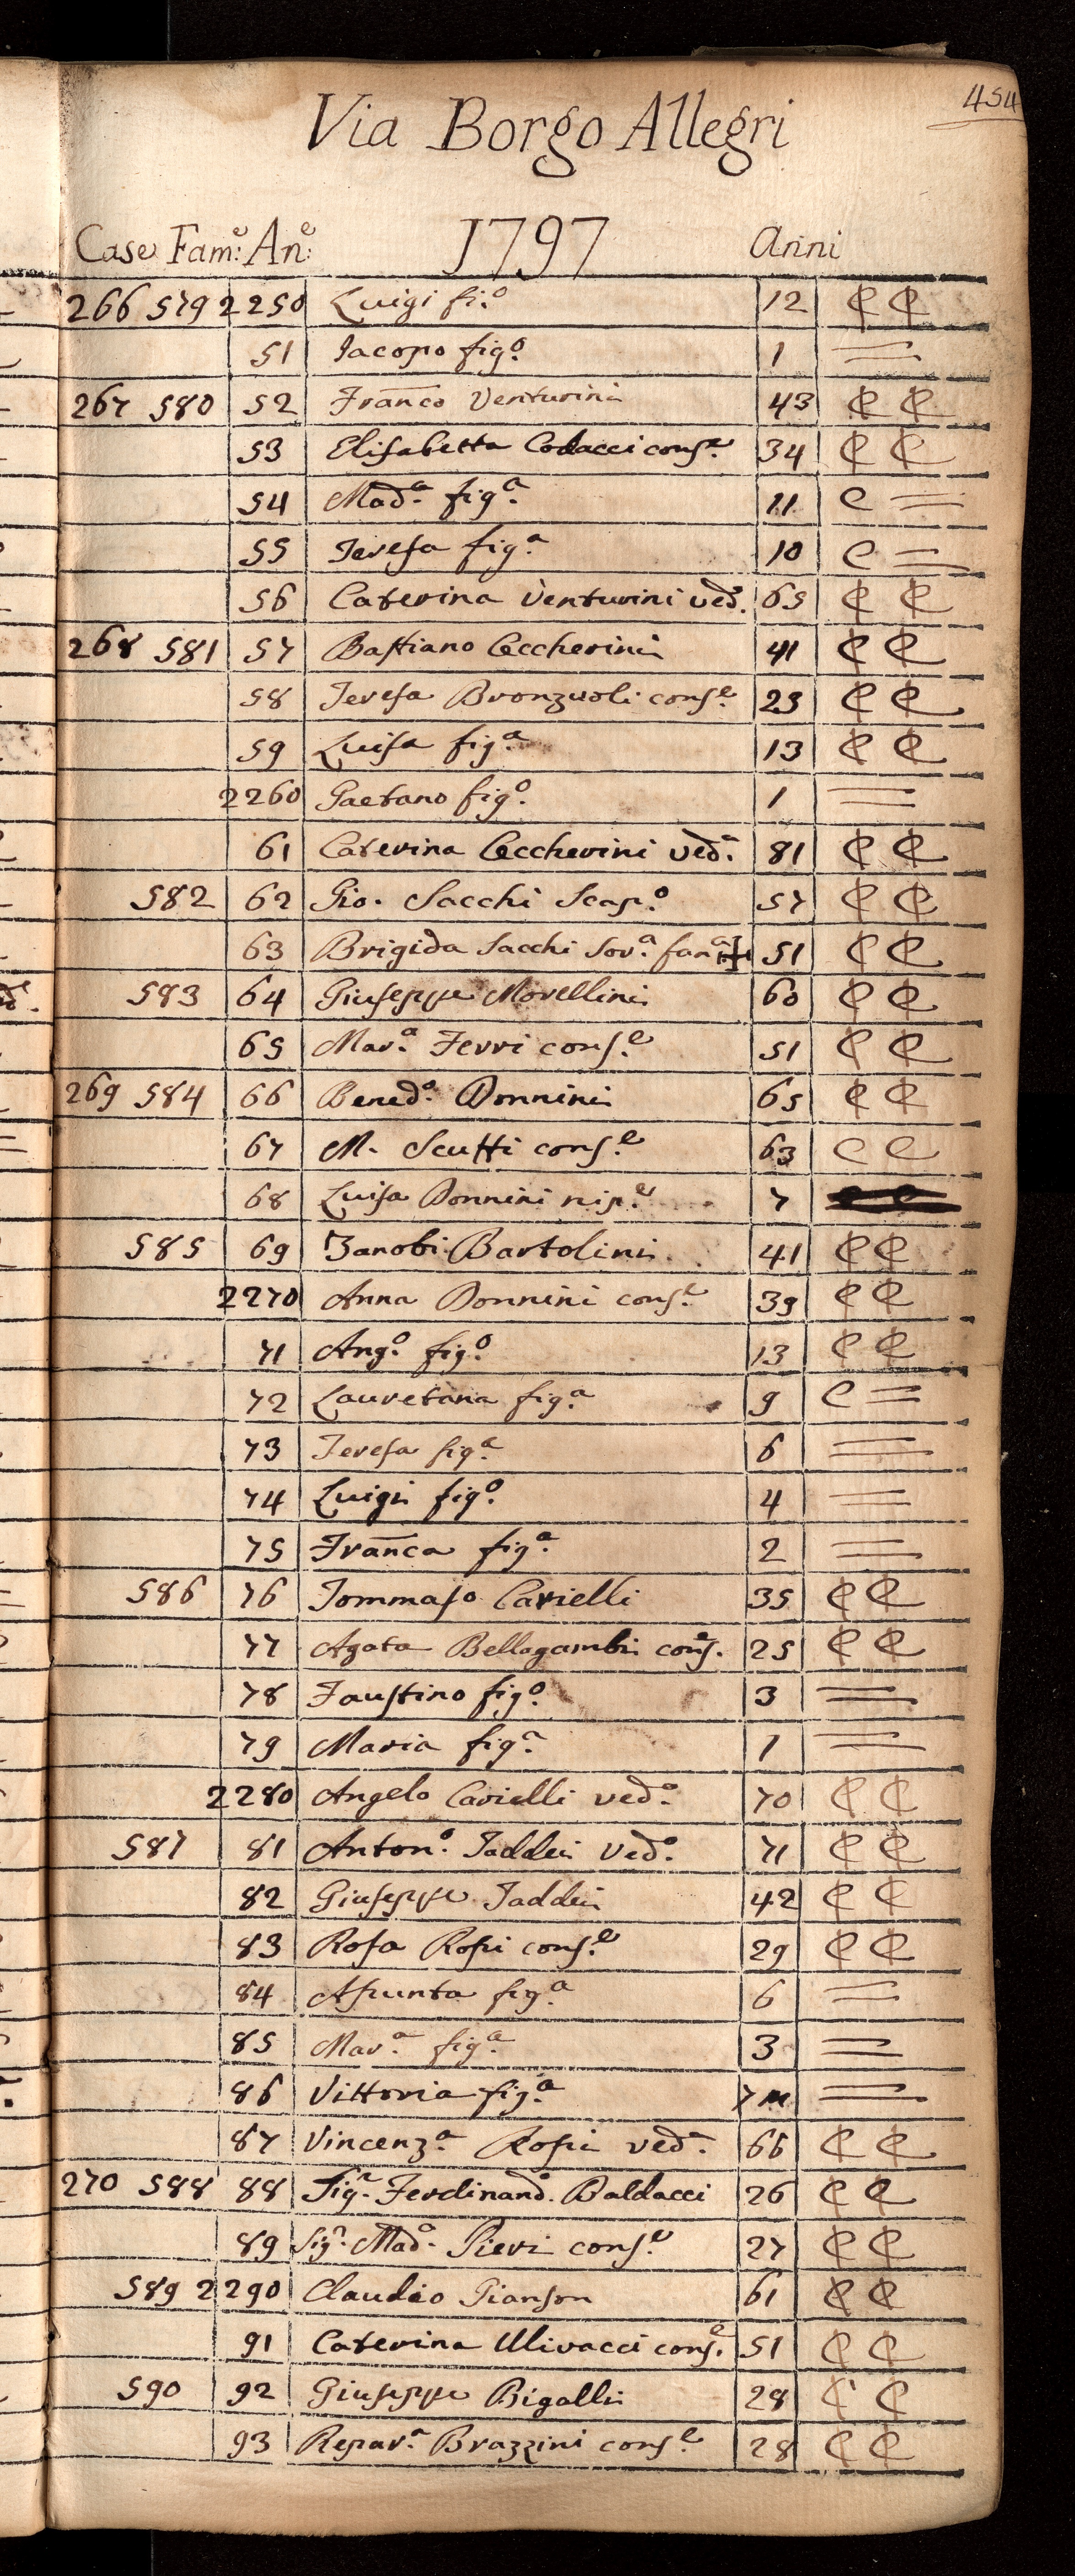 454
Via Borgo Allegri
Case Fam:e An:e 1797 Anni
266 579 2250 Luigi fi.o 12 C C
51 Iacopo fig.o 1 =
267 580 52 Franco Venturini 43 C C
53 Elisabetta Codacci cons.e 34 C C
54 Mad.a fig.a 11 C =
55 Teresa fig.a 10 C =
56 Caterina Venturini ved.a 65 C C
268 581 57 Bastiano Ceccherini 41 C C
58 Teresa Bronzuoli cons.e 23 C C
59 Luisa fig.a 13 C C
2260 Gaetano fig.o 1 =
61 Caterina Ceccherini ved.a 81 C C
582 62 Gio. Sacchi Scap.o 57 C C
63 Brigida Sacchi Sor.a fan.a 51 C C
583 64 Giuseppe Morellini 60 C C
65 Mar.a Ferri cons.e 51 C C
269 584 66 Bened.o Donnini 65 C C
67 M. Scutti cons.e 63 C C
68 Luisa Donnini nip.e 7
585 69 Zanobi Bartolini 41 C C
2270 Anna Donnini cons.e 39 C C
71 Ang.o fig.o 13 C C
72 Lauretana fig.a 9 C =
73 Teresa fig.a 6 =
74 Luigi fig.o 4 =
75 Franca fig.a 2 =
586 76 Tommaso Carielli 35 C C
77 Agata Bellagambi cons.e 25 C C
78 Faustino fig.o 3 =
79 Maria fig.a 1 =
2280 Angelo Carielli ved.o 70 C C
587 81 Anton.o Taddei Ved.o 71 C C
82 Giuseppe Taddei 42 C C
83 Rosa Rosi cons.e 29 C C
84 Asunta fig.a 6 =
85 Mar.a fig.a 3 =
86 Vittoria fig.a 7 m =
87 Vincenz.a Rosi ved.a 66 C C
270 588 88 Sig.r Ferdinand.o Baldacci 26 C C
89 Sig.ra Mad.a Pieri cons.e 27 C C
589 2290 Claudio Gianson 61 C C
91 Caterina Ulivacci cons.e 51 C C
590 92 Giuseppe Bigalli 28 C C
93 Repar.a Brazzini cons.e 28 C C